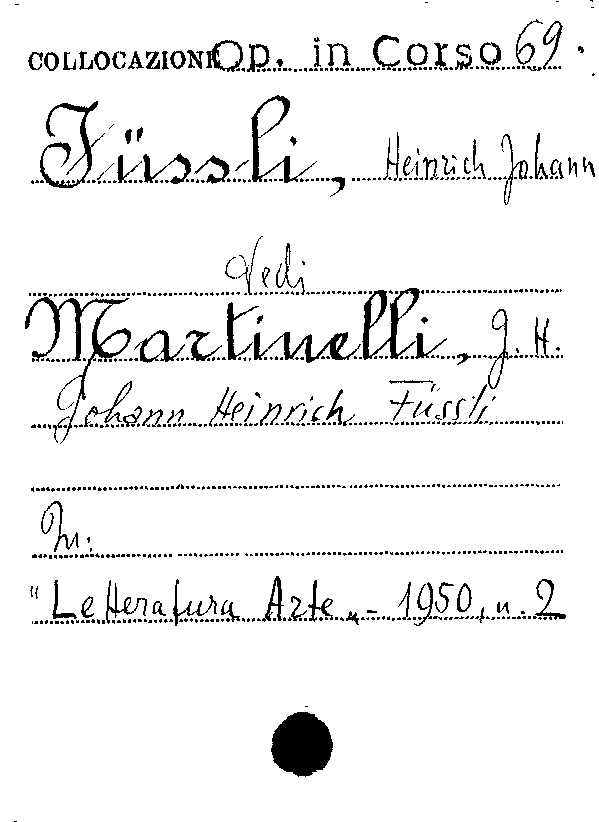 COLLOCAZIONE Op. in Corso 69.
Füssli, Heinrich Johann
Vedi
Martinelli, G. H.
Johann Heinrich Füssli
In:
"Letteratura Arte„ - 1950, n. 2